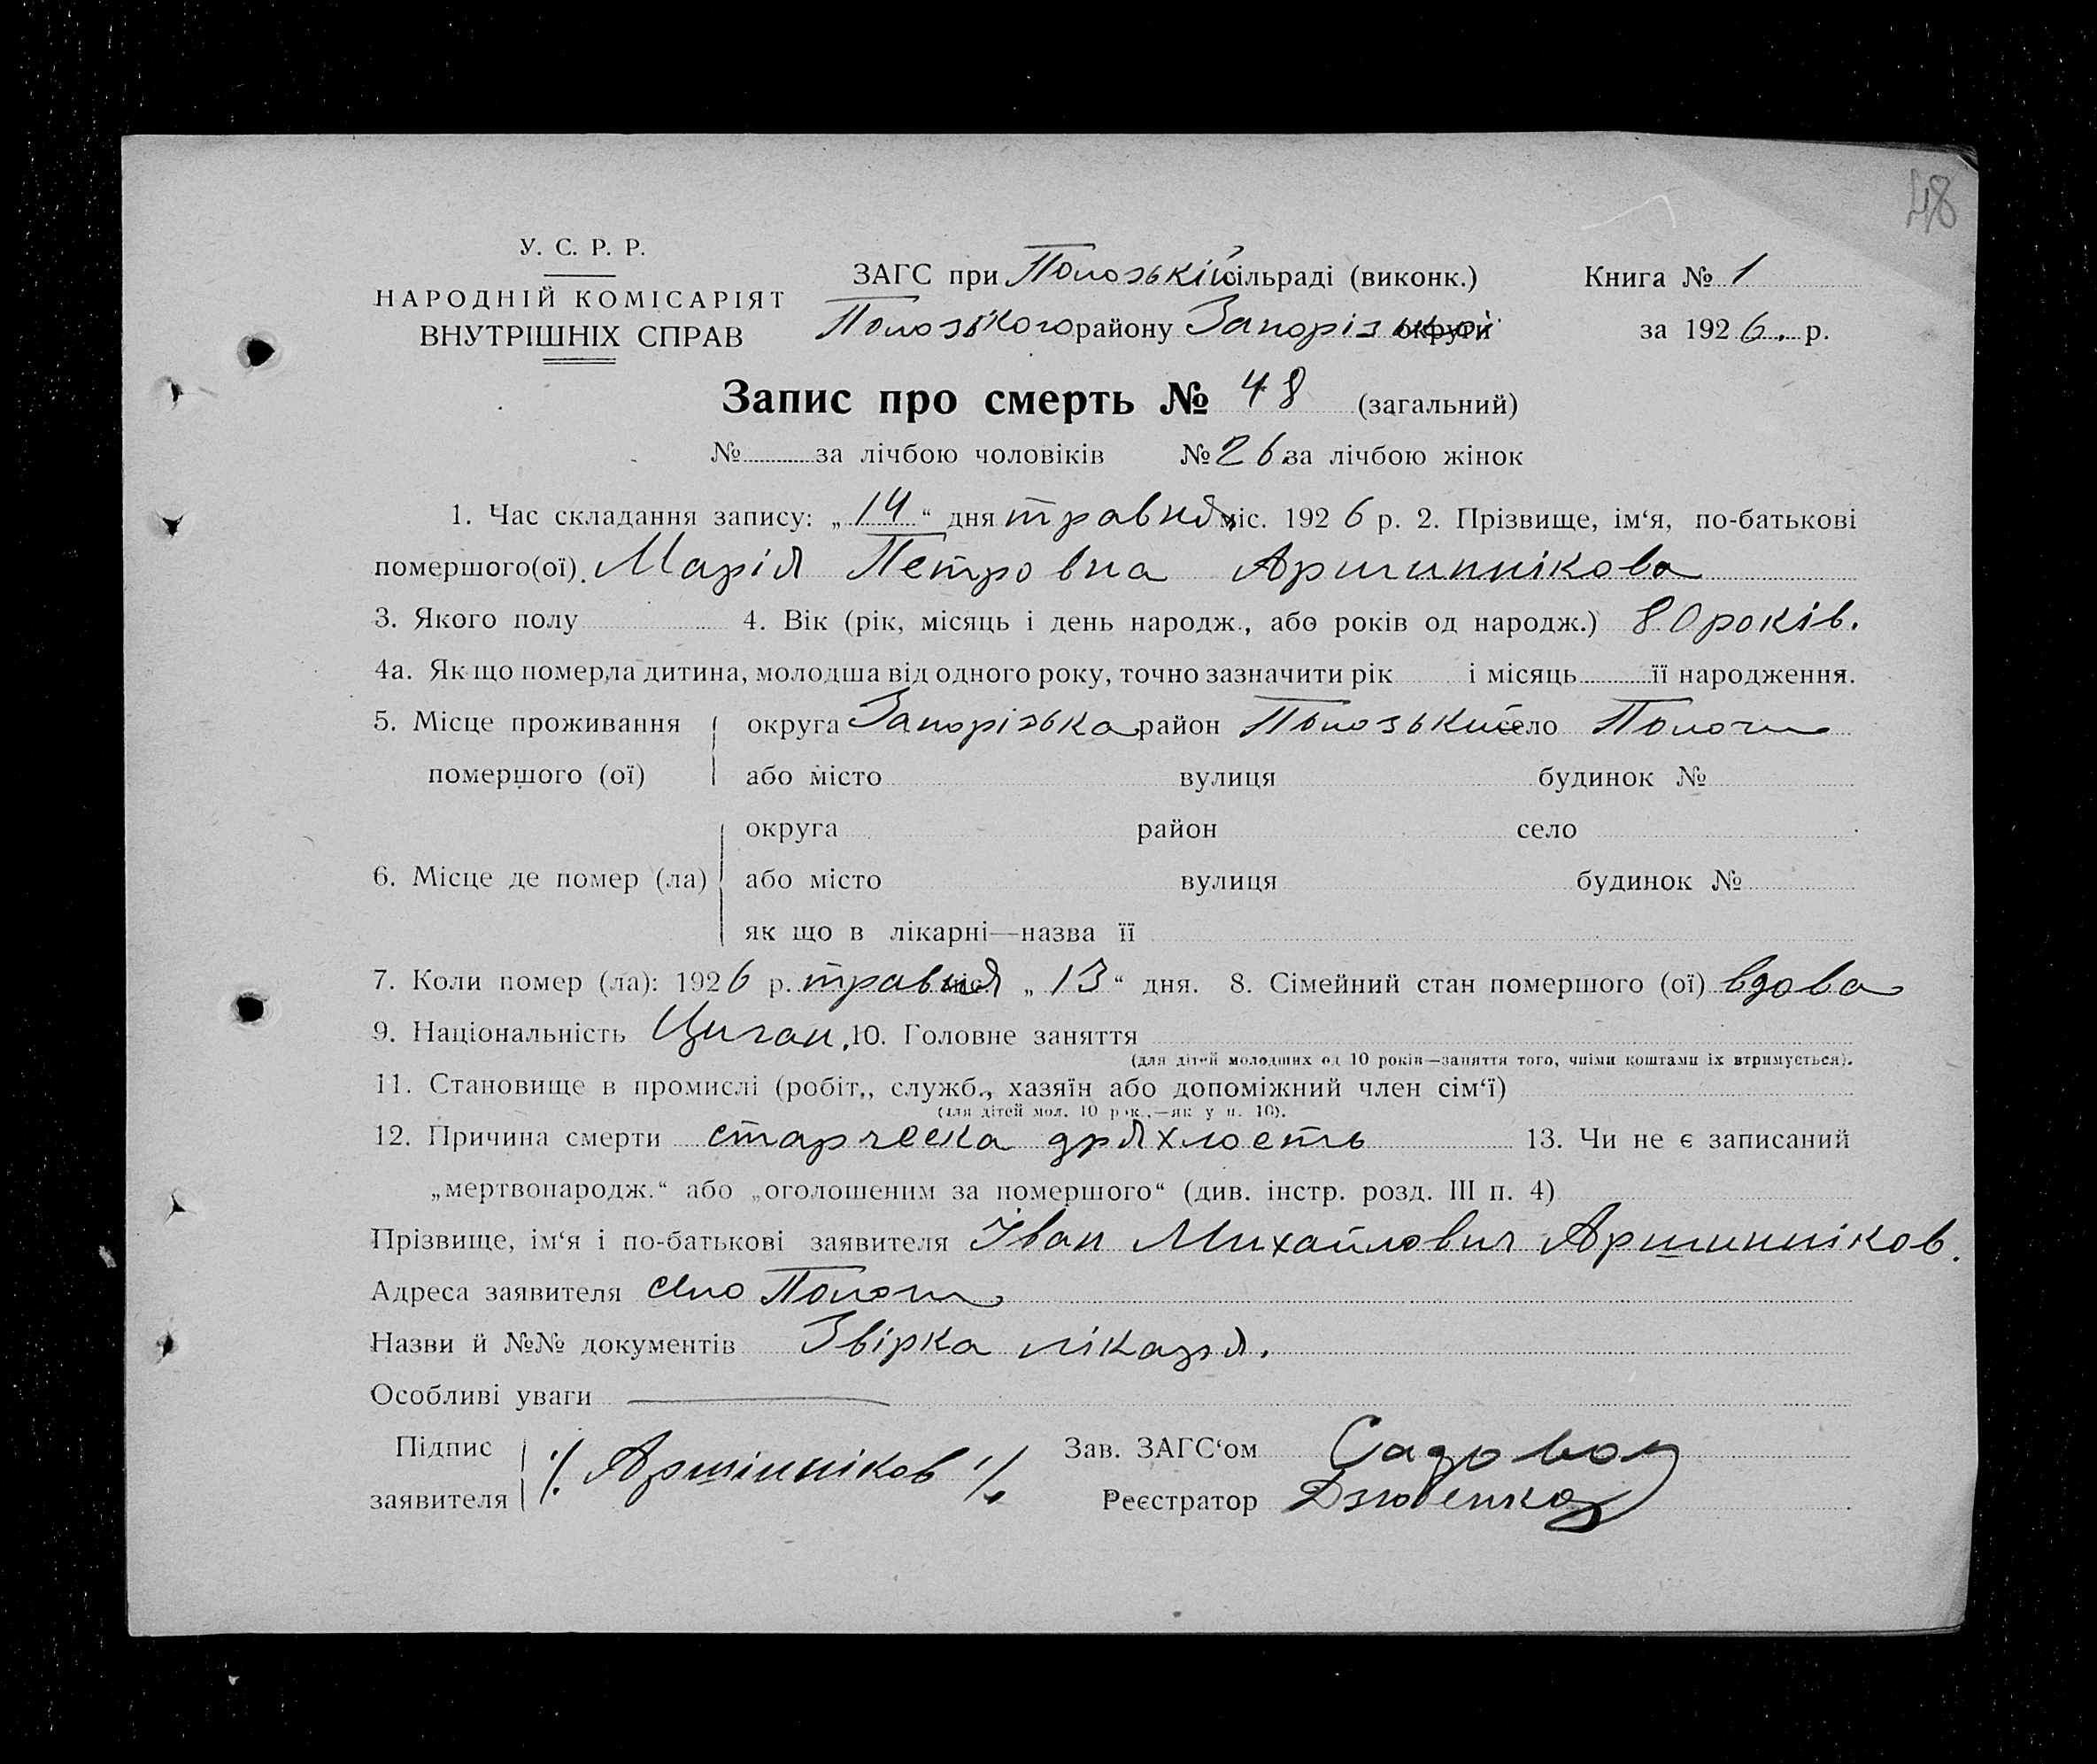 48
У. С. Р. Р.
НАРОДНІЙ КОМІСАРІЯТ
ВНУТРІШНІХ СПРАВ
ЗАГС при Пологській сільраді (виконк.)
Пологського району Запорізької округи
Книга № 1
за 1926. р.
Запис про смерть № 48 (загальний)
№ за лічбою чоловіків № 26 за лічбою жінок
1. Час складання запису: „14“ дня травня міс. 1926 р. 2. Прізвище, ім‘я, по-батькові
помершого(ої). Марія Петровна Аршиннікова
3. Якого полу 4. Вік (рік, місяць і день народж., або років од народж.) 80 років.
4а. Як що померла дитина, молодша від одного року, точно зазначити рік і місяць її народження.
5. Місце проживання помершого (ої)
округа Запорізька район Пологський село Пологи
або місто вулиця будинок №
6. Місце де помер (ла)
округа район село
або місто вулиця будинок №
як що в лікарні—назва її
7. Коли помер (ла): 1926 р. травня міс. „13“ дня. 8. Сімейний стан помершого (ої) вдова
9. Національність Циган. 10. Головне заняття
(для дітей молодших од 10 років—заняття того, чиїми коштами їх втримується).
11. Становище в промислі (робіт., служб., хазяїн або допоміжний член сім‘ї)
(для дітей мол. 10 рок.,—як у п. 10).
12. Причина смерти старческа дряхлость 13. Чи не є записаний
„мертвонародж.“ або „оголошеним за помершого“ (див. інстр. розд. III п. 4)
Прізвище, ім‘я і по-батькові заявителя Іван Михайлович Аршинніков.
Адреса заявителя село Пологи
Назви й №№ документів Звірка лікаря.
Особливі уваги
Підпис заявителя ./. Аршінніков ./.
Зав. ЗАГС‘ом Садовой
Реєстратор Дзюбенко